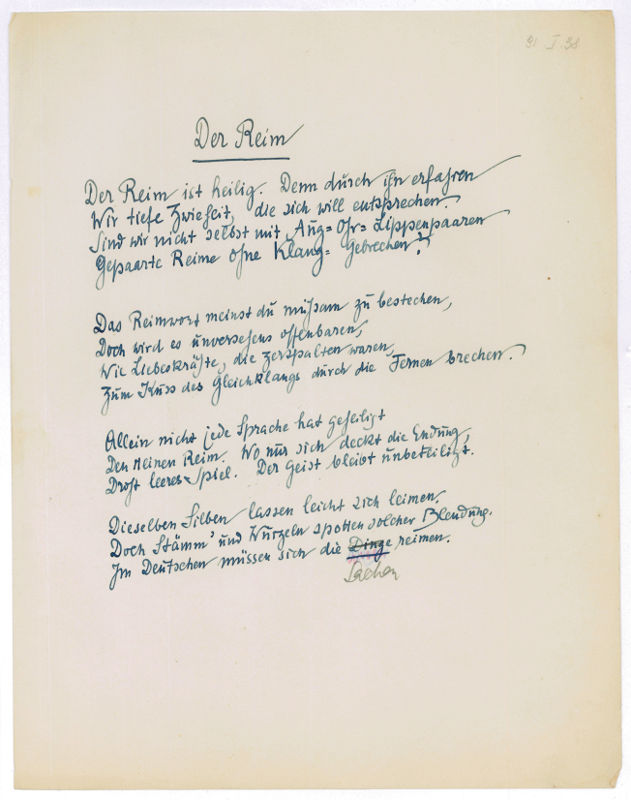 31 I. 38
Der Reim
Der Reim ist heilig. Denn durch ihn erfahren
Wir tiefe Zwieheit, die sich will entsprechen.
Sind wir nicht selbst mit Aug= Ohr= Lippenpaaren
Gepaarte Reime ohne Klang= Gebrechen?
Das Reimwort meinst du mühsam zu bestechen,
Doch wird es unversehens offenbaren,
Wie Liebeskräfte, die zerspalten waren,
Zum Kuss des Gleichklangs durch die Fernen brechen.
Allein nicht jede Sprache hat geheiligt
Den reinen Reim. Wo nur sich deckt die Endung,
Droht leeres Spiel. Der Geist bleibt unbeteiligt.
Dieselben Silben lassen leicht sich leimen.
Doch Stämm' und Wurzeln spotten solcher Blendung.
Im Deutschen müssen sich die Dinge reimen.
Sachen